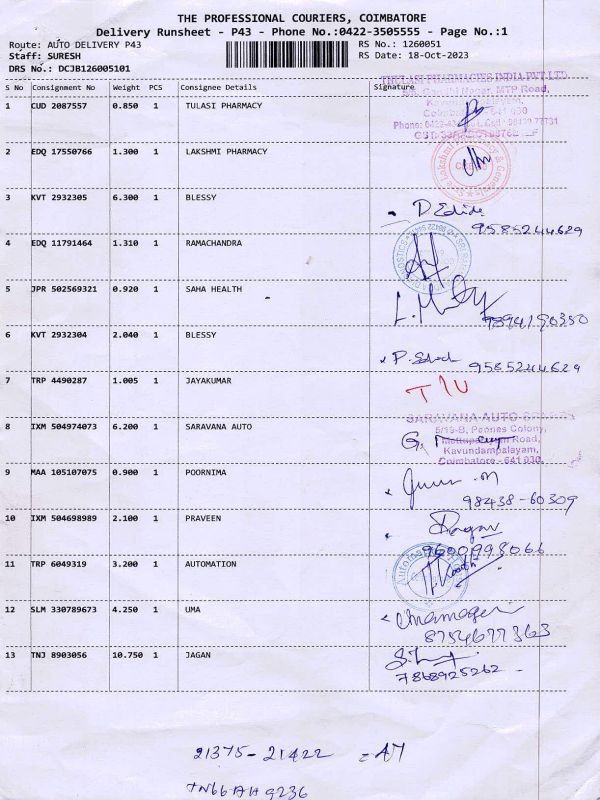 THE PROFESSIONAL COURIERS, COIMBATORE
Delivery Runsheet - P43 - Phone No.:0422-3505555 - Page No.:1
Route: AUTO DELIVERY P43 RS No.: 1260051
Staff: SURESH RS Date: 18-Oct-2023
DRS No.: DCJB126005101
S No Consignment No Weight PCS Consignee Details Signature
THULASI PHARMACIES INDIA PVT LTD
Nagar, MTP Road,
1 CUD 2087557 0.850 1 TULASI PHARMACY
Coimbatore - 641 030
2 EDQ 17550766 1.300 1 LAKSHMI PHARMACY
3 KVT 2932305 6.300 1 BLESSY
9585244629
4 EDQ 11791464 1.310 1 RAMACHANDRA
5 JPR 502569321 0.920 1 SAHA HEALTH
9894190350
6 KVT 2932304 2.040 1 BLESSY
9585244629
7 TRP 4490287 1.005 1 JAYAKUMAR
SARAVANA AUTO
8 IXM 504974073 6.200 1 SARAVANA AUTO
5/19-B, Peones Colony,
Mettupalayam Road,
Kavundampalayam,
Coimbatore - 641 030.
9 MAA 105107075 0.900 1 POORNIMA
98438-60309
10 IXM 504698989 2.100 1 PRAVEEN
9600998066
11 TRP 6049319 3.200 1 AUTOMATION
12 SLM 330789673 4.250 1 UMA
8754677363
13 TNJ 8903056 10.750 1 JAGAN
7868925262
21375-21422 = 47
TN66AH9236